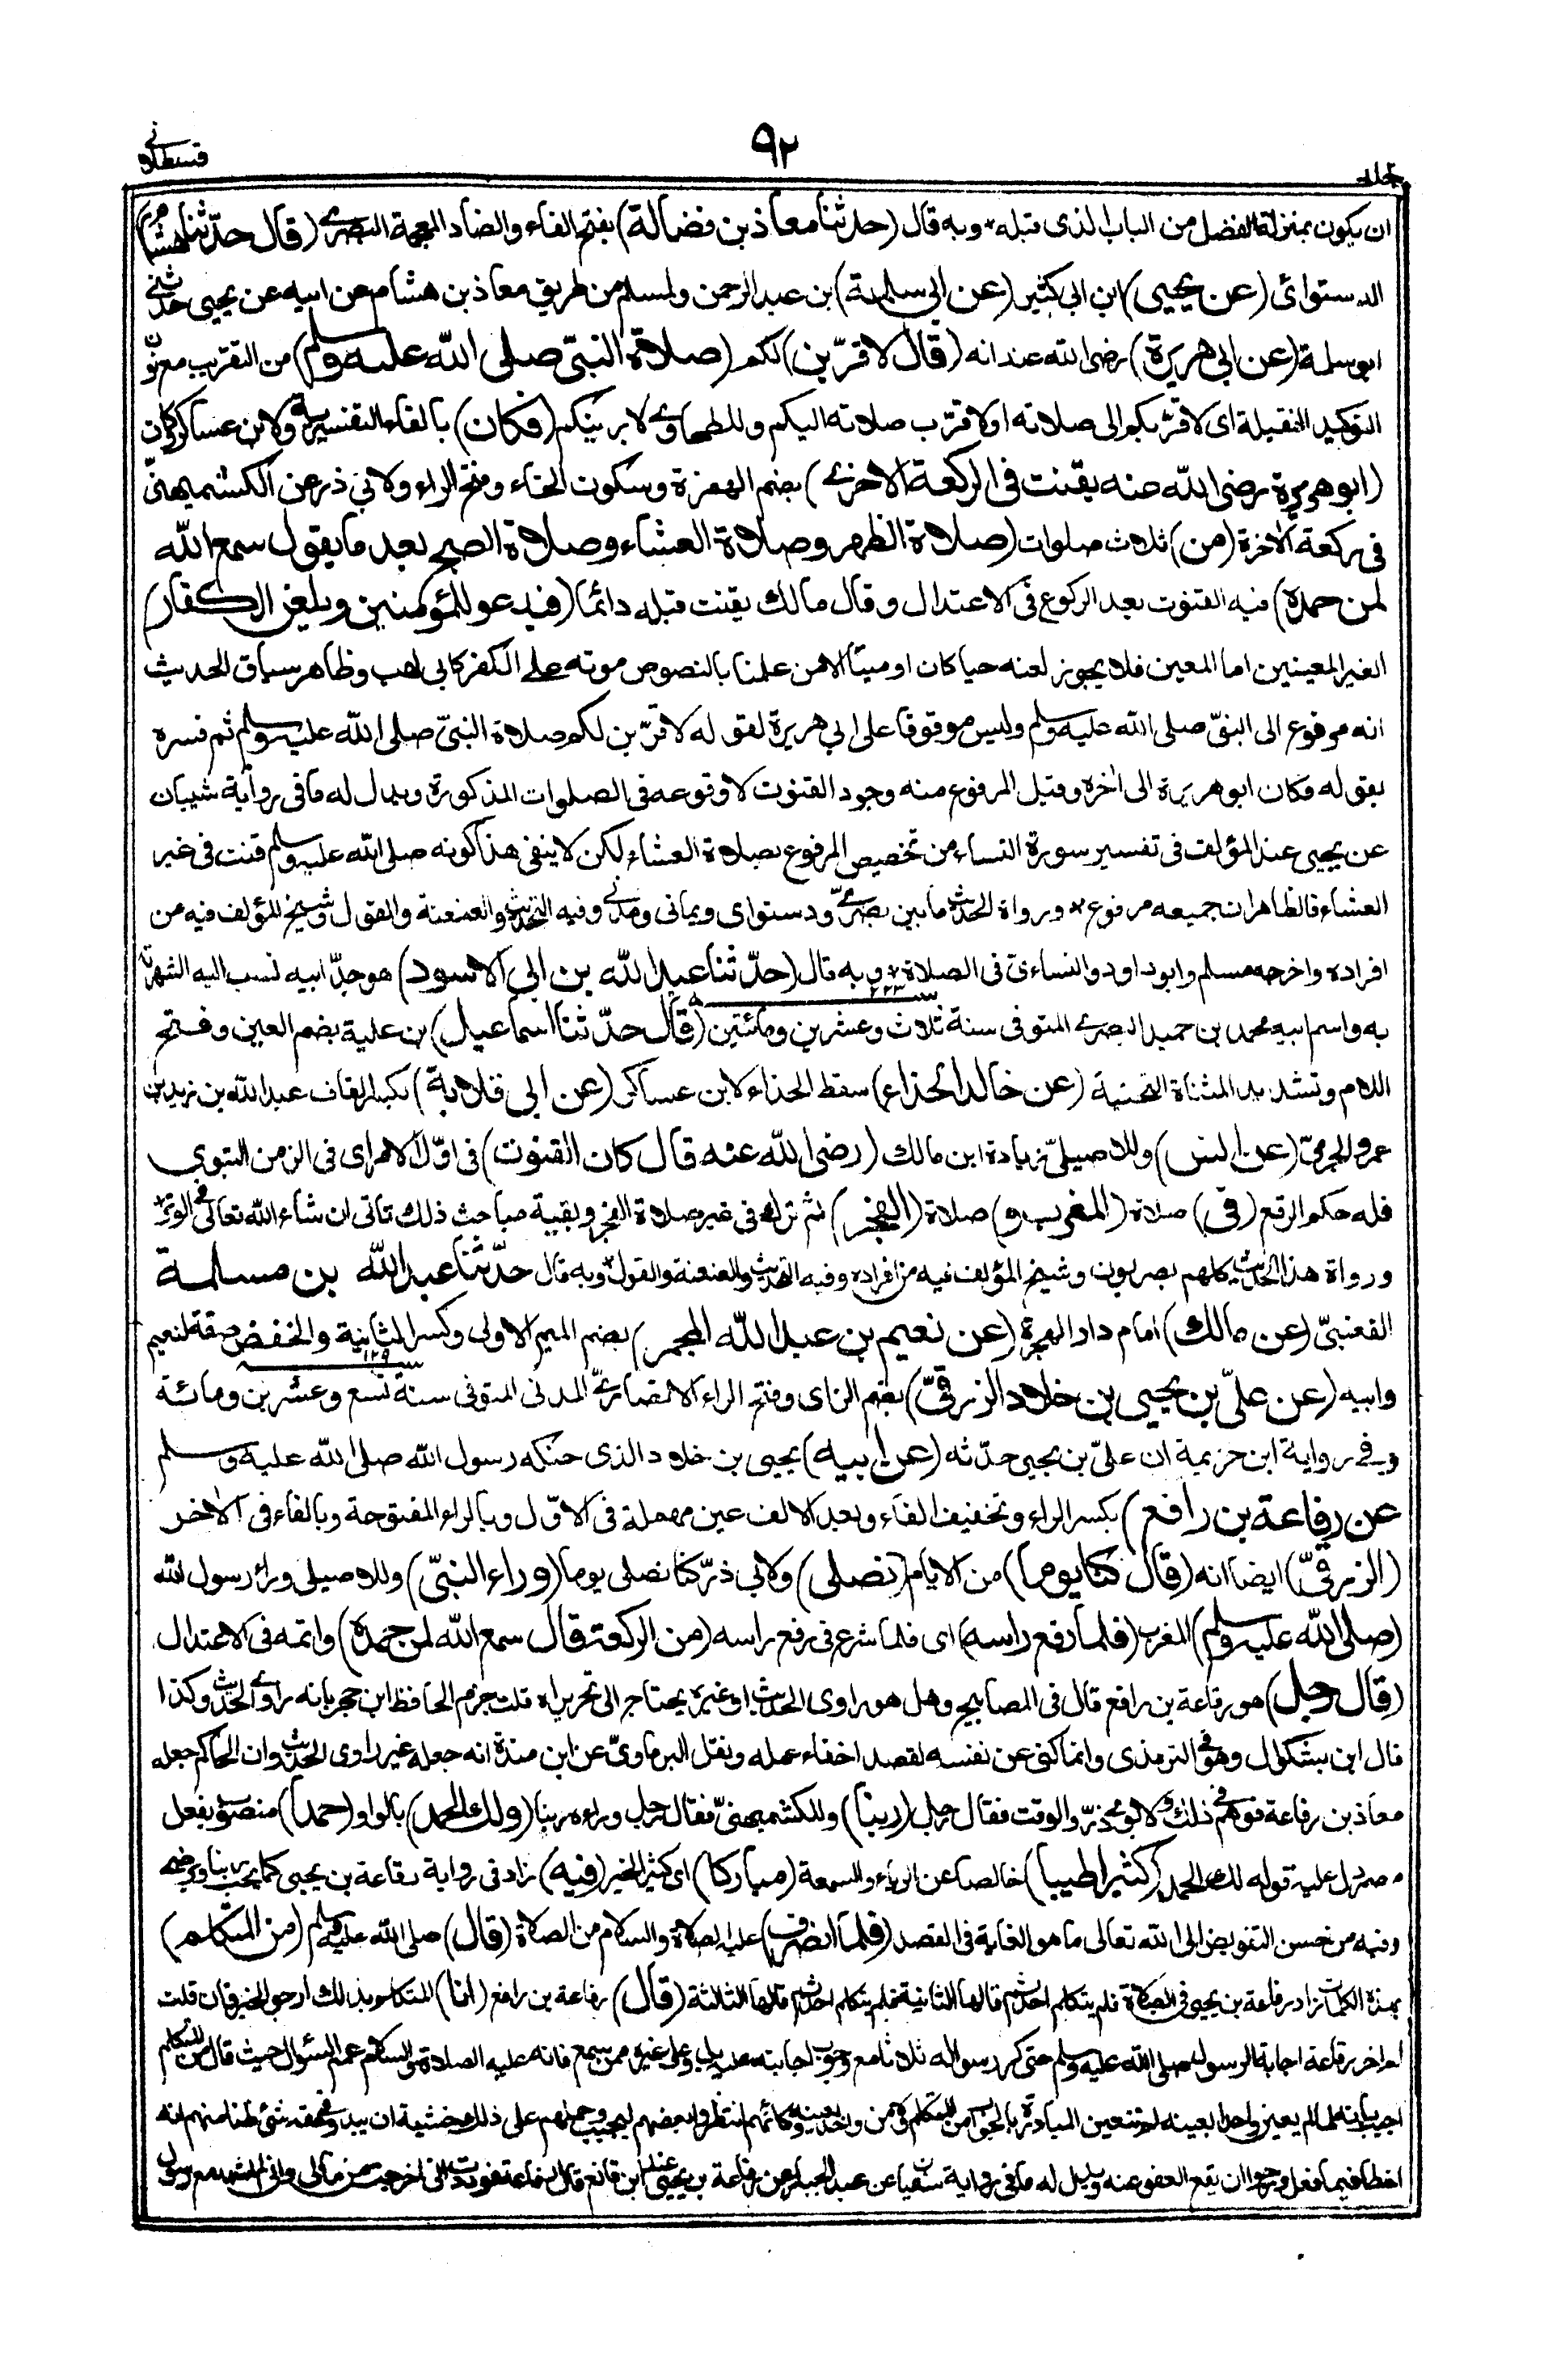 قسطلانی
٩٢
جلد
ان يكون بمنزلة الفصل من الباب الذى قبله * وبه قال (حدثنا معاذ بن فضالة) بفتح الفاء والضاد المعجمة البصرى (قال حدّثنا هشام)
الدستوائى (عن يحيى) ابن ابى كثير (عن ابى سلمة) بن عبد الرحمن ولمسلم من طريق معاذ بن هشام عن ابيه عن يحيى حدثنى
ابو سلمة (عن ابى هريرة) رضى الله عنه انه (قال لاقرّبن) لكم (صلاة النبىّ صلى الله عليه وسلم) من التقريب مع نون
التوكيد الثقيلة اى لاقرّبكم الى صلاته او لاقرّب صلاته اليكم وللطحاوى لارينكم (فكان) بالفاء التفسيرية ولابن عساكر وكان
(ابو هريرة رضى الله عنه يقنت فى الركعة الاخرى) بضم الهمزة وسكون الخاء وفتح الراء ولابى ذر عن الكشميهنىّ
فى ركعة الآخرة (من) ثلاث صلوات (صلاة الظهر وصلاة العشاء وصلاة الصبح بعد ما يقول سمع الله
لمن حمده) فيه القنوت بعد الركوع فى الاعتدال وقال مالك يقنت قبله دائما (فيدعو للمؤمنين ويلعن الكفار)
الغير المعينين اما المعين فلا يجوز لعنه حيا كان او ميتا الا من علمنا بالنصوص موته على الكفر كابى لهب وظاهر سياق الحديث
انه مرفوع الى النبىّ صلى الله عليه وسلم وليس موقوفا على ابى هريرة لقوله لاقرّبن لكم صلاة النبىّ صلى الله عليه وسلم ثم فسره
بقوله فكان ابو هريرة الى آخره وقيل المرفوع منه وجود القنوت لا وقوعه فى الصلوات المذكورة ويدل له ما فى رواية شيبان
عن يحيى عند المؤلف فى تفسير سورة النساء من تخصيص المرفوع بصلاة العشاء لكن لا ينفى هذا كونه صلى الله عليه وسلم قنت فى غير
العشاء فالظاهر ان جميعه مرفوع * ورواة الحديث ما بين بصرىّ ودستواى ويمانى ومدنى وفيه التحديث والعنعنة والقول وشيخ المؤلف فيه من
افراده واخرجه مسلم وابو داود والنساءى فى الصلاة * وبه قال (حدّثنا عبد الله بن ابى الاسود) هو جدّ ابيه نسب اليه لشهرته
٢٢٣
به واسم ابيه محمد بن حميد البصرى المتوفى سنة ثلاث وعشرين ومائتين (قال حدّثنا اسماعيل) بن علية بضم العين وفتح
اللام وتشديد المثناة التحتية (عن خالد الحذاء) سقط الحذاء لابن عساكر (عن ابى قلابة) بكسر القاف عبد الله بن زيد بن
عمرو الجرمىّ (عن انس) وللاصيلىّ زيادة ابن مالك (رضى الله عنه قال كان القنوت) فى اوّل الامر اى فى الزمن النبوى
فله حكم الرفع (فى) صلاة (المغرب و) صلاة (الفجر) ثم ترك فى غير صلاة الفجر وبقية مباحث ذلك تاتى ان شاء الله تعالى فى الوتر *
ورواة هذا الحديث كلهم بصريون وشيخ المؤلف فيه من افراده وفيه التحديث والعنعنة والقول * وبه قال حدّثنا عبد الله بن مسلمة
القعنبىّ (عن مالك) امام دار الهجرة (عن نعيم بن عبد الله المجمر) بضم الميم الاولى وكسر الثانية والخفض صفة لنعيم
١٢٩
وابيه (عن علىّ بن يحيى بن خلاد الزرقىّ) بضم الزاى وفتح الراء الانصارىّ المدنى المتوفى سنة تسع وعشرين ومائة
وفى رواية ابن خزيمة ان علىّ بن يحيى حدّثه (عن ابيه) يحيى بن خلاد الذى حنكه رسول الله صلى الله عليه وسلم
عن رفاعة بن رافع) بكسر الراء وتخفيف الفاء وبعد الالف عين مهملة فى الاوّل وبالراء المفتوحة وبالفاء فى الآخر
(الزرقىّ) ايضا انه (قال كنا يوما) من الايام (نصلى) ولابى ذرّ كنا نصلى يوما (وراء النبىّ) وللاصيلى وراء رسول الله
(صلى الله عليه وسلم) المغرب (فلما رفع راسه) اى فلما شرع فى رفع راسه (من الركعة قال سمع الله لمن حمده) واتمه فى الاعتدال
(قال رجل) هو رفاعة بن رافع قال فى المصابيح وهل هو راوى الحديث او غيره يحتاج الى تحرير اه قلت جزم الحافظ ابن حجر بانه راوى الحديث وكذا
قال ابن بشكوال وهو فى الترمذى وانما كنى عن نفسه لقصد اخفاء عمله ونقل البرماوىّ عن ابن مندة انه جعله غير راوى الحديث وان الحاكم جعله
معاذ بن رفاعة فوهم فى ذلك ولابوى ذرّ والوقت فقال رجل (ربنا) وللكشميهنىّ فقال رجل وراءه ربنا (ولك الحمد) بالواو (حمدا) منصوب بفعل
مضمر دل عليه قوله لك الحمد (كثيرا طيبا) خالصا عن الرياء والسمعة (مباركا) اى كثير الخير (فيه) زاد فى رواية رفاعة بن يحيى كما يحب ربنا ويرضى
وفيه من حسن التفويض الى الله تعالى ما هو الغاية فى القصد (فلما انصرف) عليه الصلاة والسلام من الصلاة (قال) صلى الله عليه وسلم (من المتكلم)
بهذه الكلمات زاد رفاعة بن يحيى فى الصلاة فلم يتكلم احد ثم قالها الثانية فلم يتكلم احد ثم قالها الثالثة (قال) رفاعة بن رافع (انا) المتكلم بذلك ارجو الخير فان قلت
لم اخر رفاعة اجابة الرسول صلى الله عليه وسلم حتى كرر سواله ثلاثا مع وجوب اجابته عليه بل وعلى غيره ممن سمع فانه عليه الصلاة والسلام عم السؤال حيث قال من المتكلم
اجيب بانه لما لم يعين واحدا بعينه لم تتعين المبادرة بالجواب من المتكلم ولا من واحد بعينه وكانهم انتظروا بعضهم ليجيب وحملهم على ذلك خشية ان يبدو فى حقه شئ ظنا منهم انه
اخطا فيما فعل ورجوا ان يقع العفو عنه ويدل له ما فى رواية سعيد بن عبد الجبار عن رفاعة بن يحيى عند ابن قانع قال رفاعة فوددت انى اخرجت من مالى وانى لم اشهد مع رسول